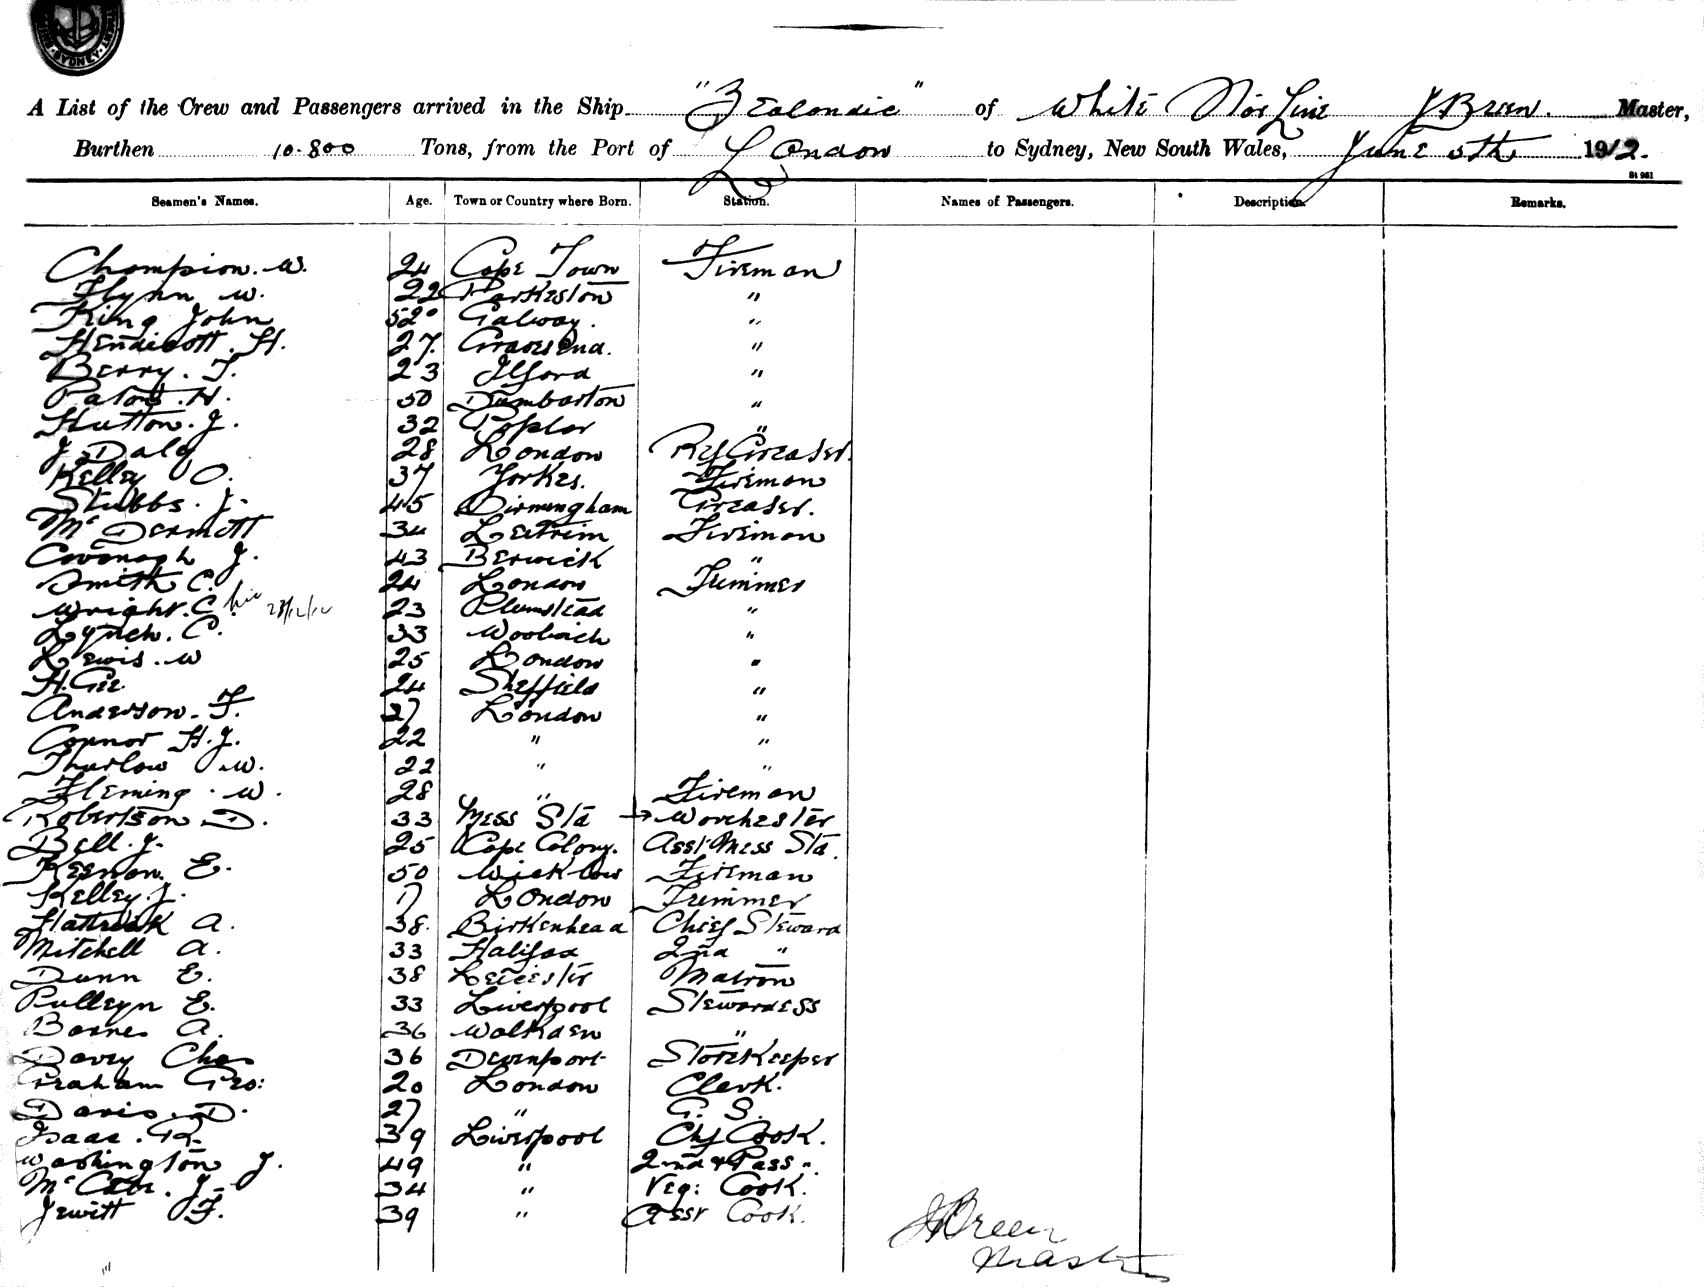 SYDNEY
A List of the Crew and Passengers arrived in the Ship "Zealandic" of White Star Line J Breen. Master,
Burthen 10.800 Tons, from the Port of London to Sydney, New South Wales, June 5th 1912.
St 981
Seamen's Names. Age. Town or Country where Born. Station. Names of Passengers. Description. Remarks.
Champion. W. 24 Cape Town Fireman
Flynn W. 22 Parkeston "
King John 52 Galway. "
Hendicott. H. 27. Gravesend. "
Berry. T. 23 Ilford "
Paton. H. 50 Dumbarton "
Hutton. J. 32 Poplar "
J. Daly 28 London Rf Greaser.
Kelley O. 37 Yorkes. Fireman
Stubbs. J. 45 Birmingham Greaser.
McDermott 34 Leitrim Fireman
Cavanagh J. 43 Berwick "
Smith C. 24 London Trimmer
Wright. C. 23/12/12 23 Plumstead "
Lynch. C. 33 Woolwich "
Lewis. W 25 London "
H. Gee. 24 Sheffield "
Anderson. F. 27 London "
Connor H.J. 22 " "
Thurlow W. 22 " "
Fleming. W. 28 " Fireman
Robertson D. 33 Mess Std Worchester
Bell. J. 25 Cape Colony. Asst Mess Std.
Keenan. E. 50 Wicklow Fireman
Kelley. J. 17 London Trimmer
A. 38. Birkenhead Chief Steward
Mitchell A. 33 Halifax 2nd "
Dunn E. 38 Leicester Matron
Pulleyn E. 33 Liverpool Stewardess
Barnes A. 36 Walkden "
Davey Chas 36 Devenport Storekeeper
Graham Geo: 20 London Clerk.
Davis. D. 27 " G. S.
Isaac. R. 39 Liverpool Chf Cook.
Washington J. 49 " 2nd & Pass ".
McCabe. J. 34 " Veg: Cook.
Jewitt F. 39 " Asst Cook.
J Breen
Master